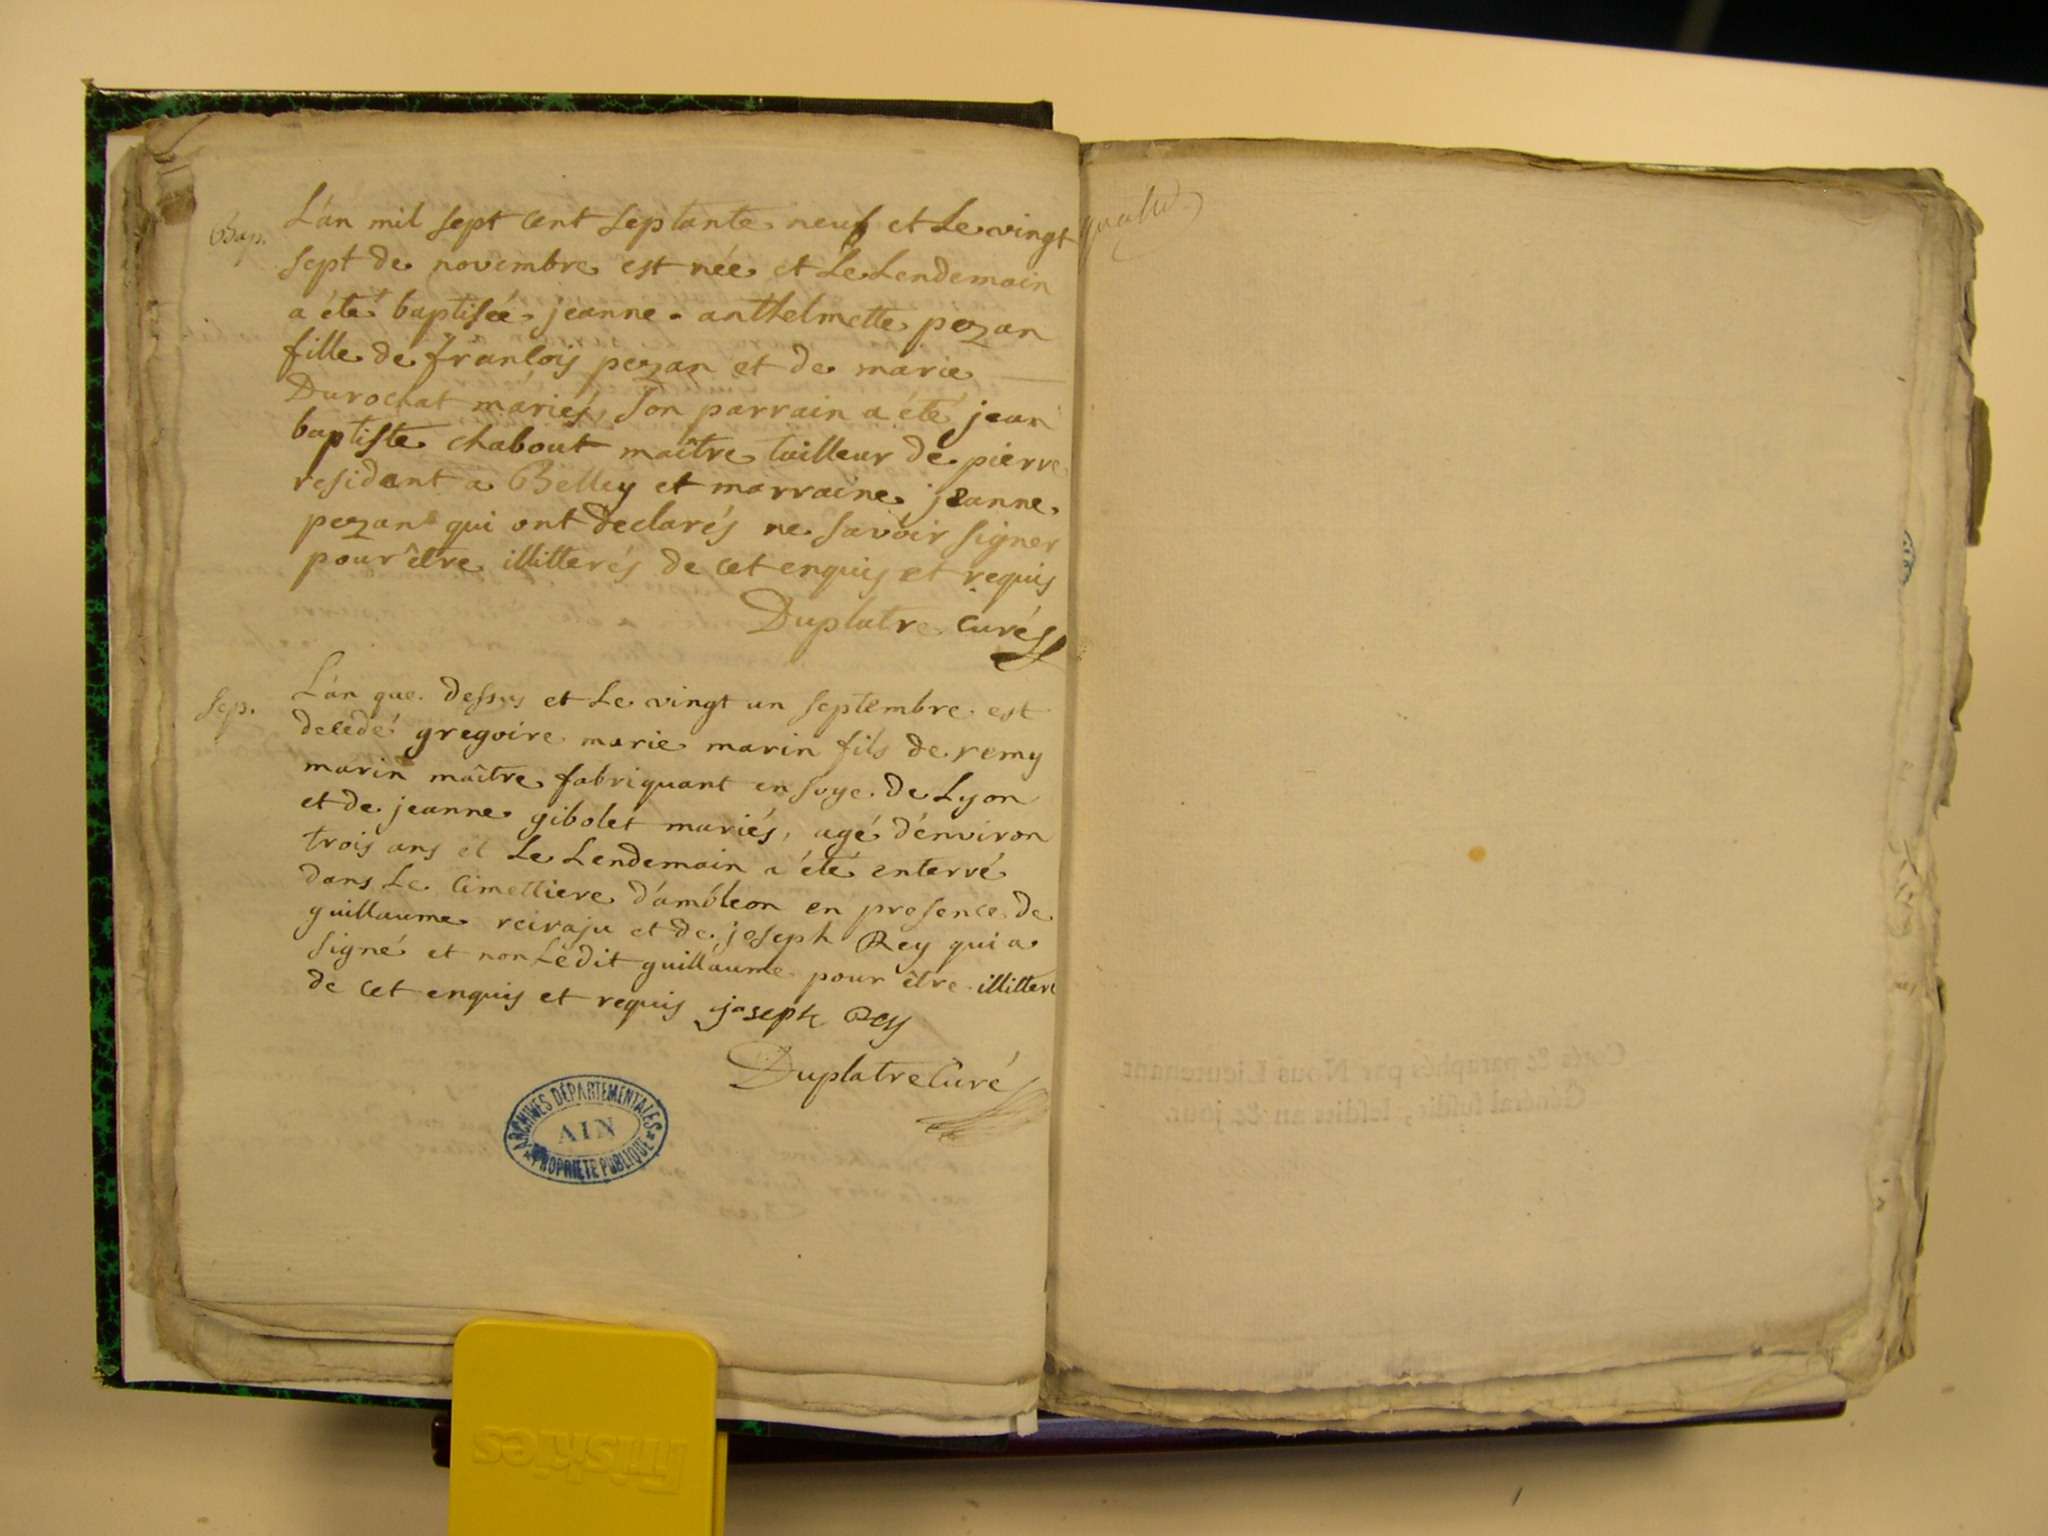 Bap.
L'an mil sept cent septante neuf et le vingt
sept de novembre est née et le Lendemain
a été baptisée jeanne anthelmette pezan
fille de françois pezan et de marie
Durochat mariés, son parrain a été jean
baptiste chabout maître tailleur de pierre
residant a Belley et marraine jeanne
pezan qui ont declarés ne savoir signer
pour être illitterés de cet enquis et requis
Duplatre curé
Sep.
L'an que dessus et le vingt un septembre est
decedé gregoire marie marin fils de remy
marin maître fabriquant en soye de Lyon
et de jeanne gibolet mariés, agé d'environ
trois ans et le Lendemain a été enterré
dans le cimettiere d'ambleon en presence de
guillaume reiraju et de joseph Rey qui a
signé et non Ledit guillaume pour être illitteré
de cet enquis et requis joseph Rey
Duplatre Curé
ARCHIVES DÉPARTEMENTALES
AIN
PROPRIÉTÉ PUBLIQUE
quatre
Cotés & paraphés par Nous Lieutenant
Général susdit, lesdits an & jour.
Friskies